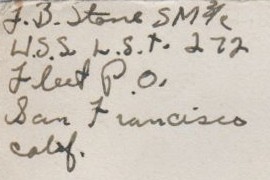 J. B. Stone SM 3/c
U.S.S. L.S.T. 272
Fleet P.O.
San Francisco
Calif.